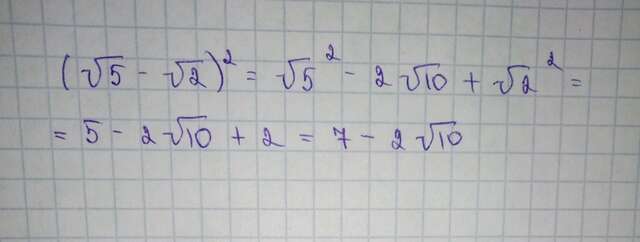 (√5 - √2)² = √5² - 2√10 + √2² =
= 5 - 2√10 + 2 = 7 - 2√10